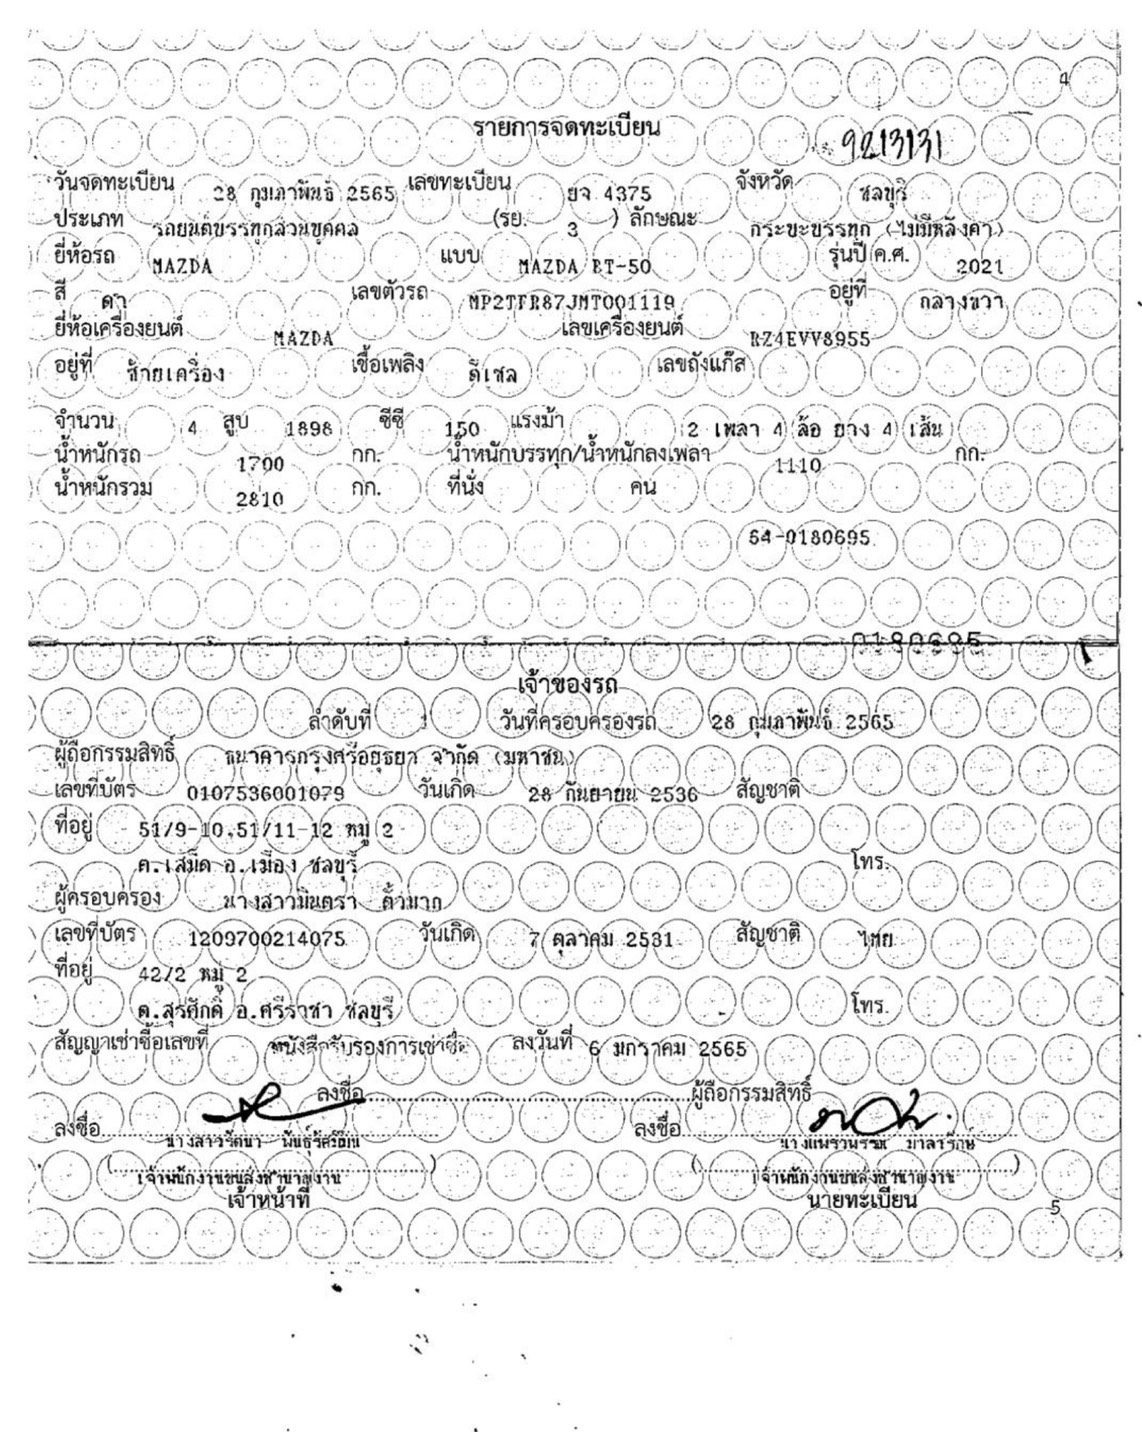 4
รายการจดทะเบียน
9213131
วันจดทะเบียน 28 กุมภาพันธ์ 2565 เลขทะเบียน ยจ 4375 จังหวัด ชลบุรี
ประเภท รถยนต์บรรทุกส่วนบุคคล (รย. 3 ) ลักษณะ กระบะบรรทุก (ไม่มีหลังคา)
ยี่ห้อรถ MAZDA แบบ MAZDA BT-50 รุ่นปี ค.ศ. 2021
สี ดำ เลขตัวรถ MP2TFR87JMT001119 อยู่ที่ กลางขวา
ยี่ห้อเครื่องยนต์ MAZDA เลขเครื่องยนต์ RZ4EVV8955
อยู่ที่ ซ้ายเครื่อง เชื้อเพลิง ดีเซล เลขถังแก๊ส
จำนวน 4 สูบ 1898 ซีซี 150 แรงม้า 2 เพลา 4 ล้อ ยาง 4 เส้น
น้ำหนักรถ 1700 กก. น้ำหนักบรรทุก/น้ำหนักลงเพลา 1110 กก.
น้ำหนักรวม 2810 กก. ที่นั่ง คน
64-0180695
0180695
เจ้าของรถ
ลำดับที่ 1 วันที่ครอบครองรถ 28 กุมภาพันธ์ 2565
ผู้ถือกรรมสิทธิ์ ธนาคารกรุงศรีอยุธยา จำกัด (มหาชน)
เลขที่บัตร 0107536001079 วันเกิด 28 กันยายน 2536 สัญชาติ
ที่อยู่ 51/9-10,51/11-12 หมู่ 2
ต.เสม็ด อ.เมือง ชลบุรี โทร.
ผู้ครอบครอง นางสาวมินตรา ติ้วมาก
เลขที่บัตร 1209700214075 วันเกิด 7 ตุลาคม 2531 สัญชาติ ไทย
ที่อยู่ 42/2 หมู่ 2
ต.สุรศักดิ์ อ.ศรีราชา ชลบุรี โทร.
สัญญาเช่าซื้อเลขที่ หนังสือรับรองการเช่าซื้อ ลงวันที่ 6 มกราคม 2565
ลงชื่อ ผู้ถือกรรมสิทธิ์
ลงชื่อ ลงชื่อ
นางสาวรัตนา
(เจ้าพนักงานขนส่งชำนาญงาน) (เจ้าพนักงานขนส่งชำนาญงาน)
เจ้าหน้าที่ นายทะเบียน
5